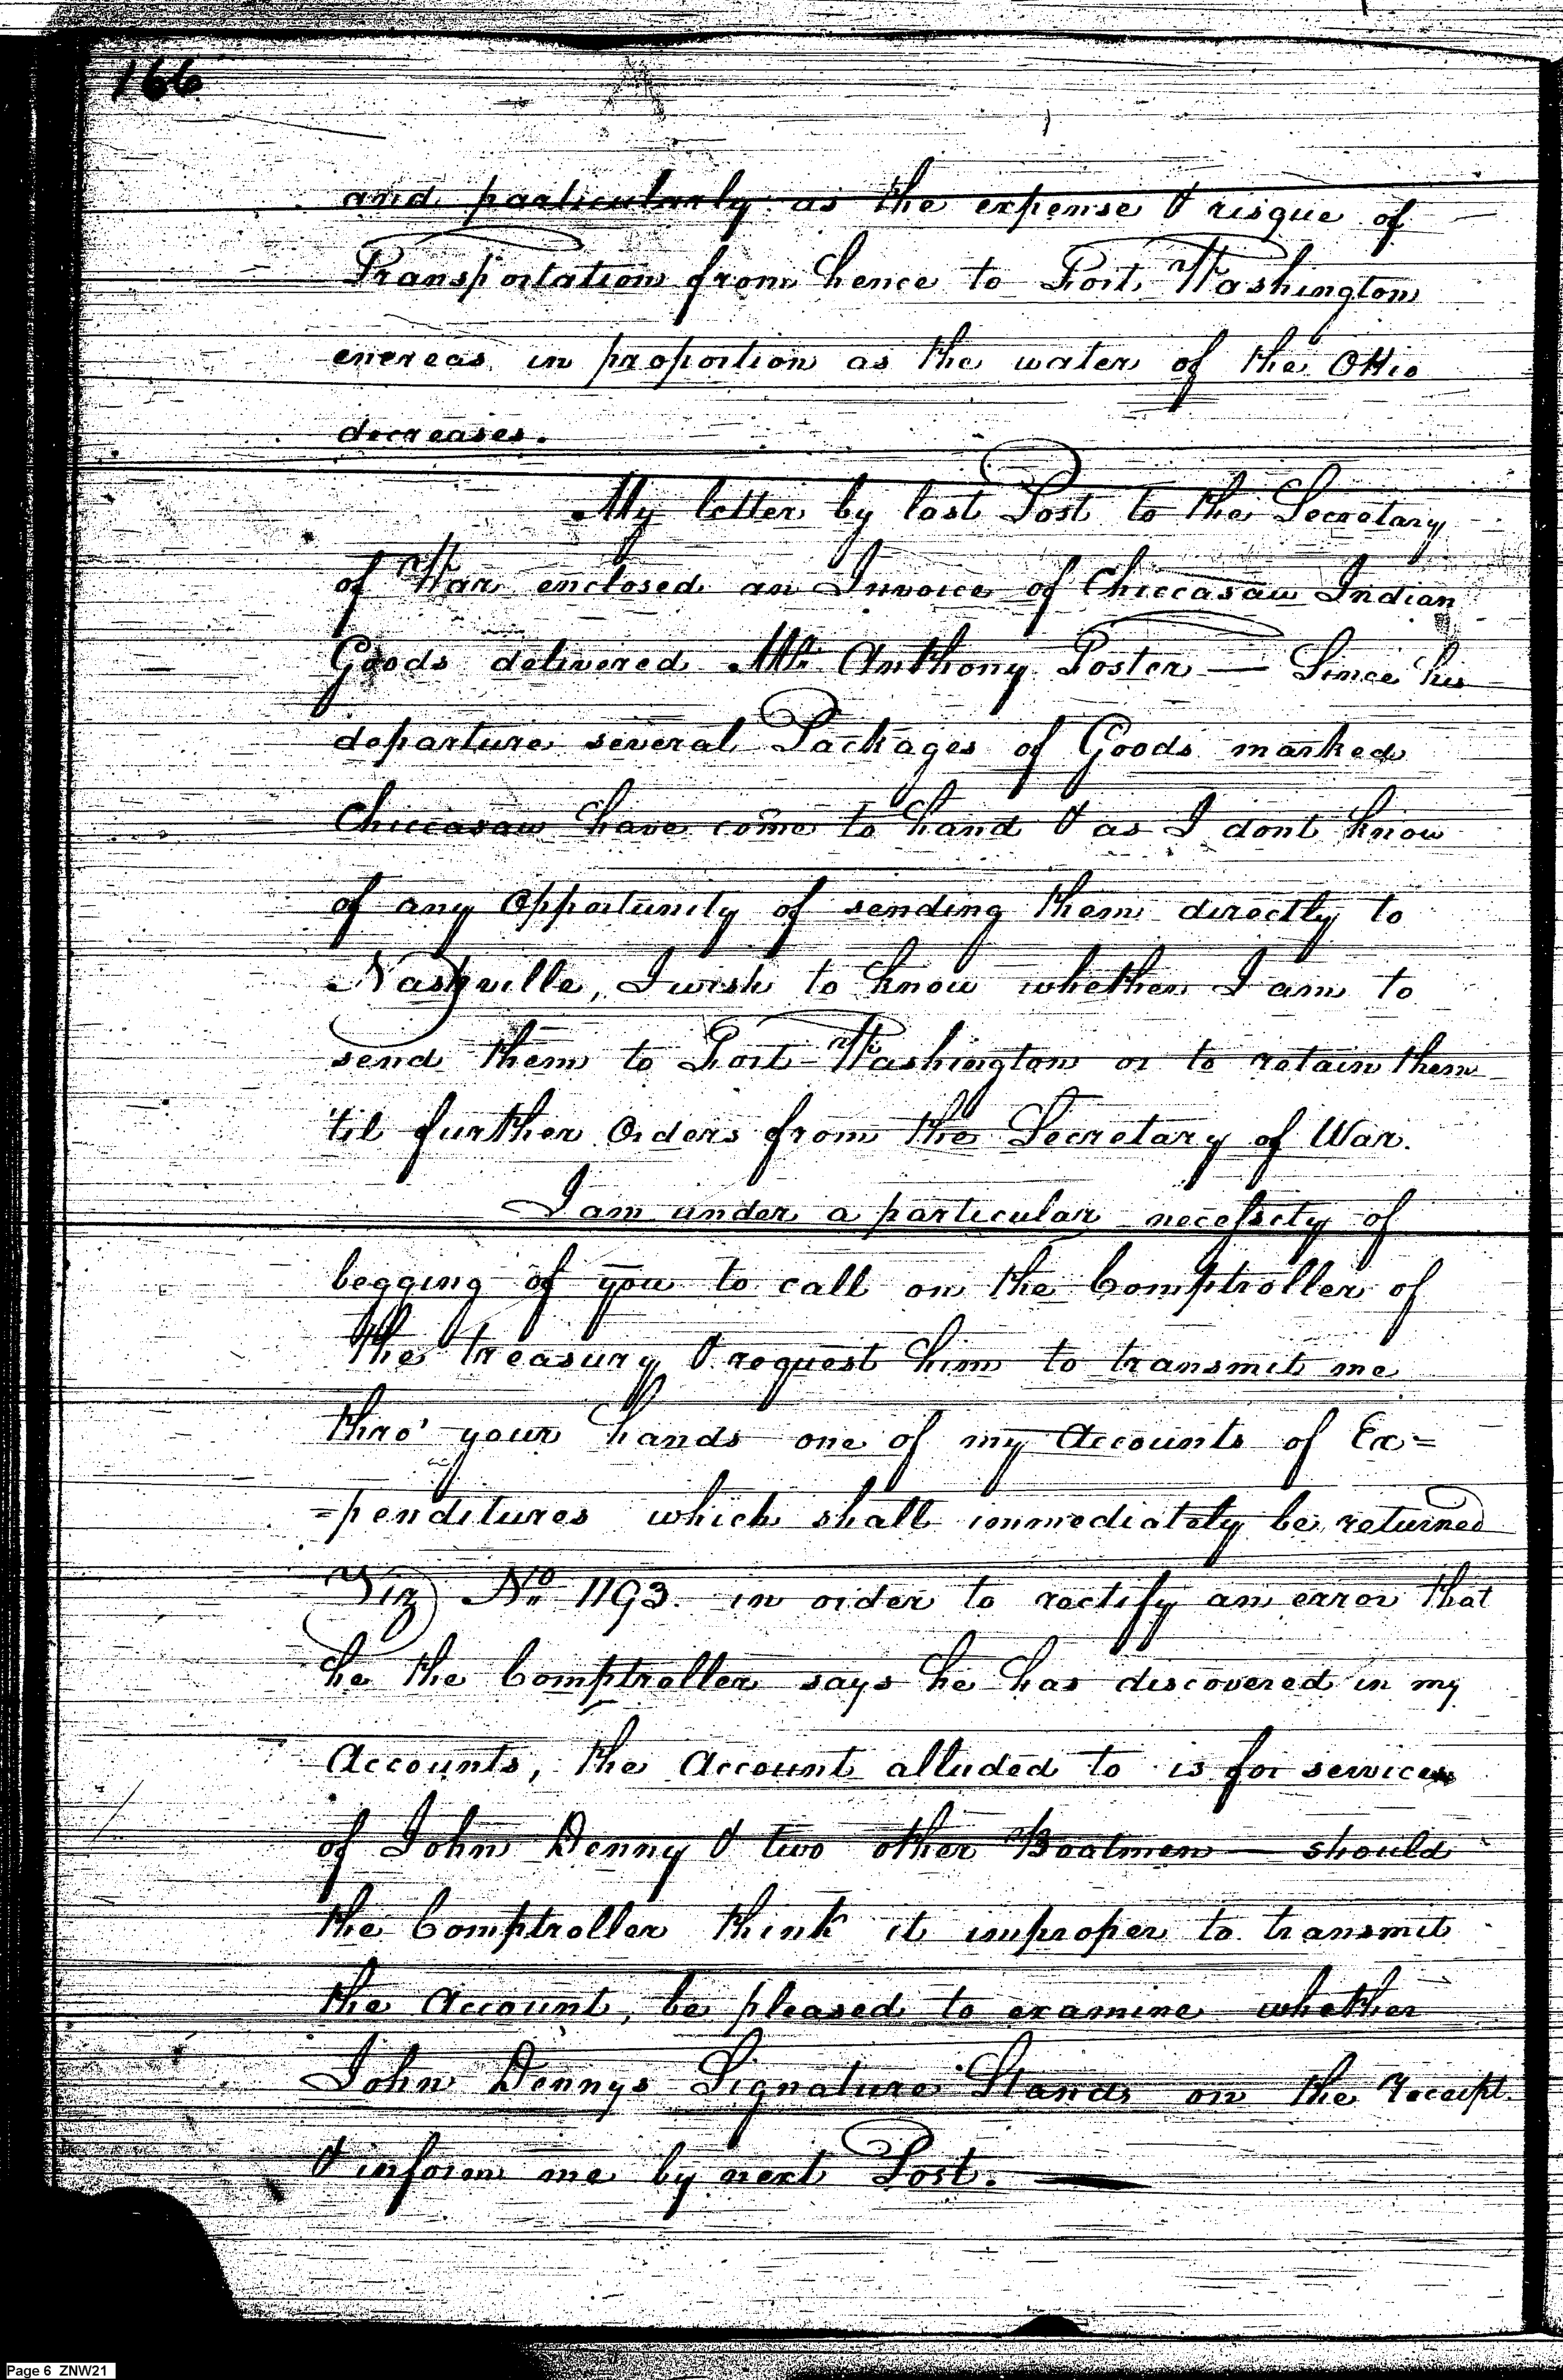 166
and particularly as the expense & risque of
Transportation from hence to Fort Washington
encreas in proportion as the water of the Ohio
decreases.
My letter by last Post to the Secretary
of War enclosed an Invoice of Chiccasaw Indian
Goods delivered Mr. Anthony Foster — Since his
departure several Packages of Goods marked
Chiccasaw have come to hand & as I dont know
of any Opportunity of sending them directly to
Nashville, I wish to know whether I am to
send them to Fort Washington or to retain them
'til further Orders from the Secretary of War.
I am under a particular necessity of
begging of you to call on the Comptroller of
the treasury & request him to transmit me
thro' your hands one of my Accounts of Ex=
=penditures which shall immediately be returned
Viz No. 1193. in order to rectify an error that
he the Comptroller says he has discovered in my
Accounts, the Account alluded to is for services
of John Denny & two other Boatmen — should
the Comptroller think it improper to transmit
the Account, be pleased to examine whether
John Dennys Signature Stands on the receipt
& inform me by next Post. —
Page 6 ZNW21